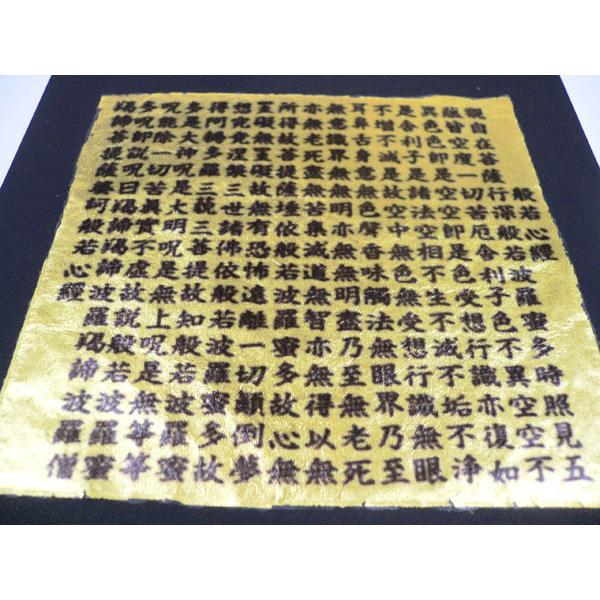 般若心經
觀自在菩薩行深般若波羅蜜多時照見五
蘊皆空度一切苦厄舍利子色不異空空不
異色色卽是空空卽是色受想行識亦復如
是舍利子是諸法空相不生不滅不垢不淨
不增不減是故空中無色無受想行識無眼
耳鼻舌身意無色聲香味觸法無眼界乃至
無意識界無無明亦無無明盡乃至無老死
亦無老死盡無苦集滅道無智亦無得以無
所得故菩提薩埵依般若波羅蜜多故心無
罣礙無罣礙故無有恐怖遠離一切顚倒夢
想究竟涅槃三世諸佛依般若波羅蜜多故
得阿耨多羅三藐三菩提故知般若波羅蜜
多是大神呪是大明呪是無上呪是無等等
呪能除一切苦眞實不虛故說般若波羅蜜
多呪卽說呪曰羯諦羯諦波羅羯諦波羅僧
羯諦菩提薩婆訶般若心經